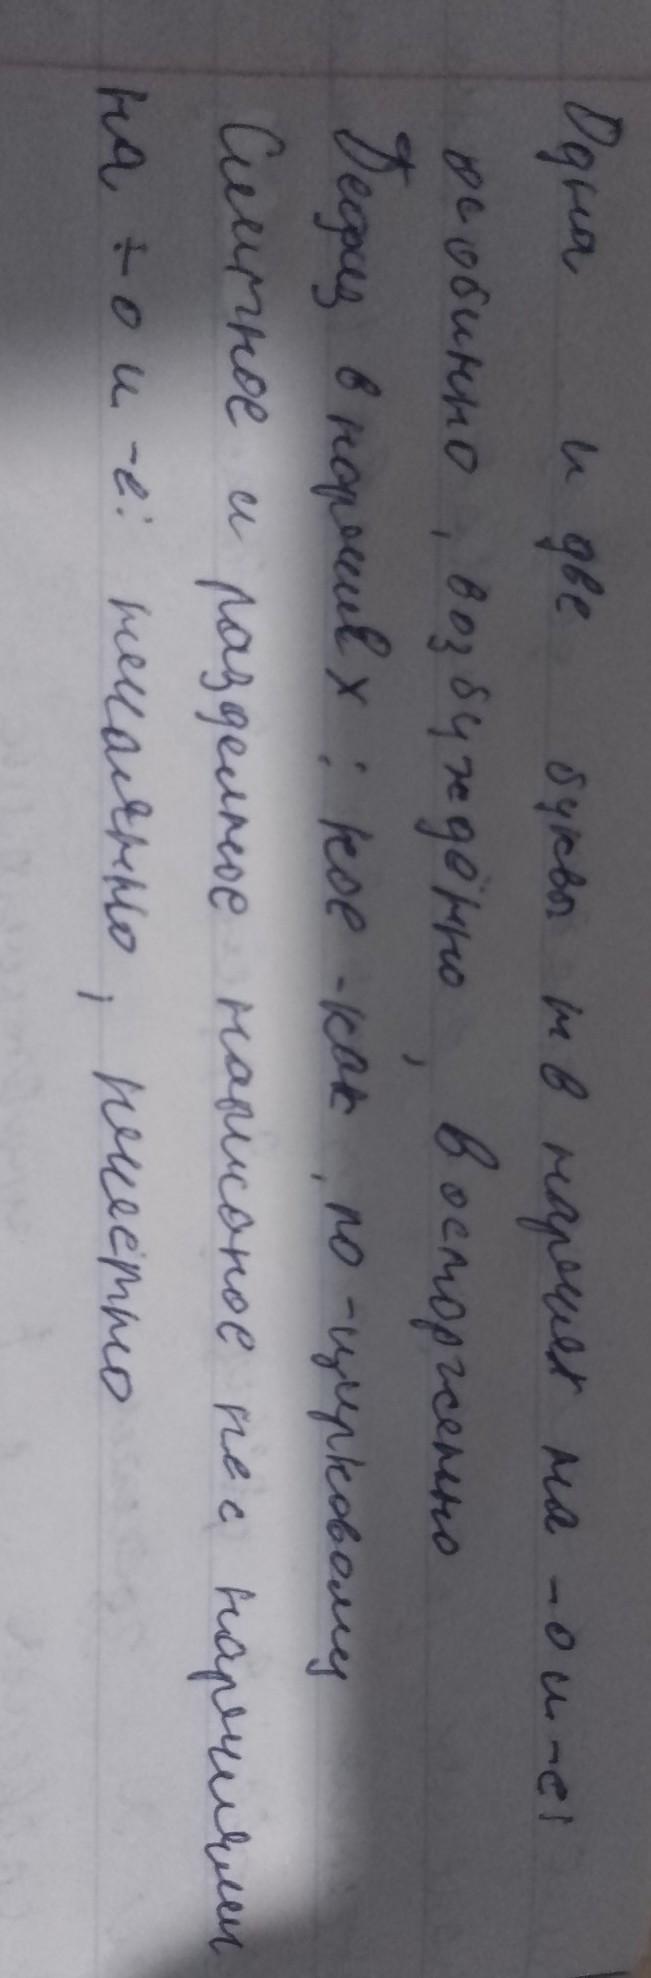 Одна и две буквы н в наречиях на -о и -е:
особинно, возбуждённо, восторженно
Дефиз в наречиях: кое-как, по-цирковому
Слитное и раздельное написаное не с наречиями
на -о и -е: нечаянно, нечестно